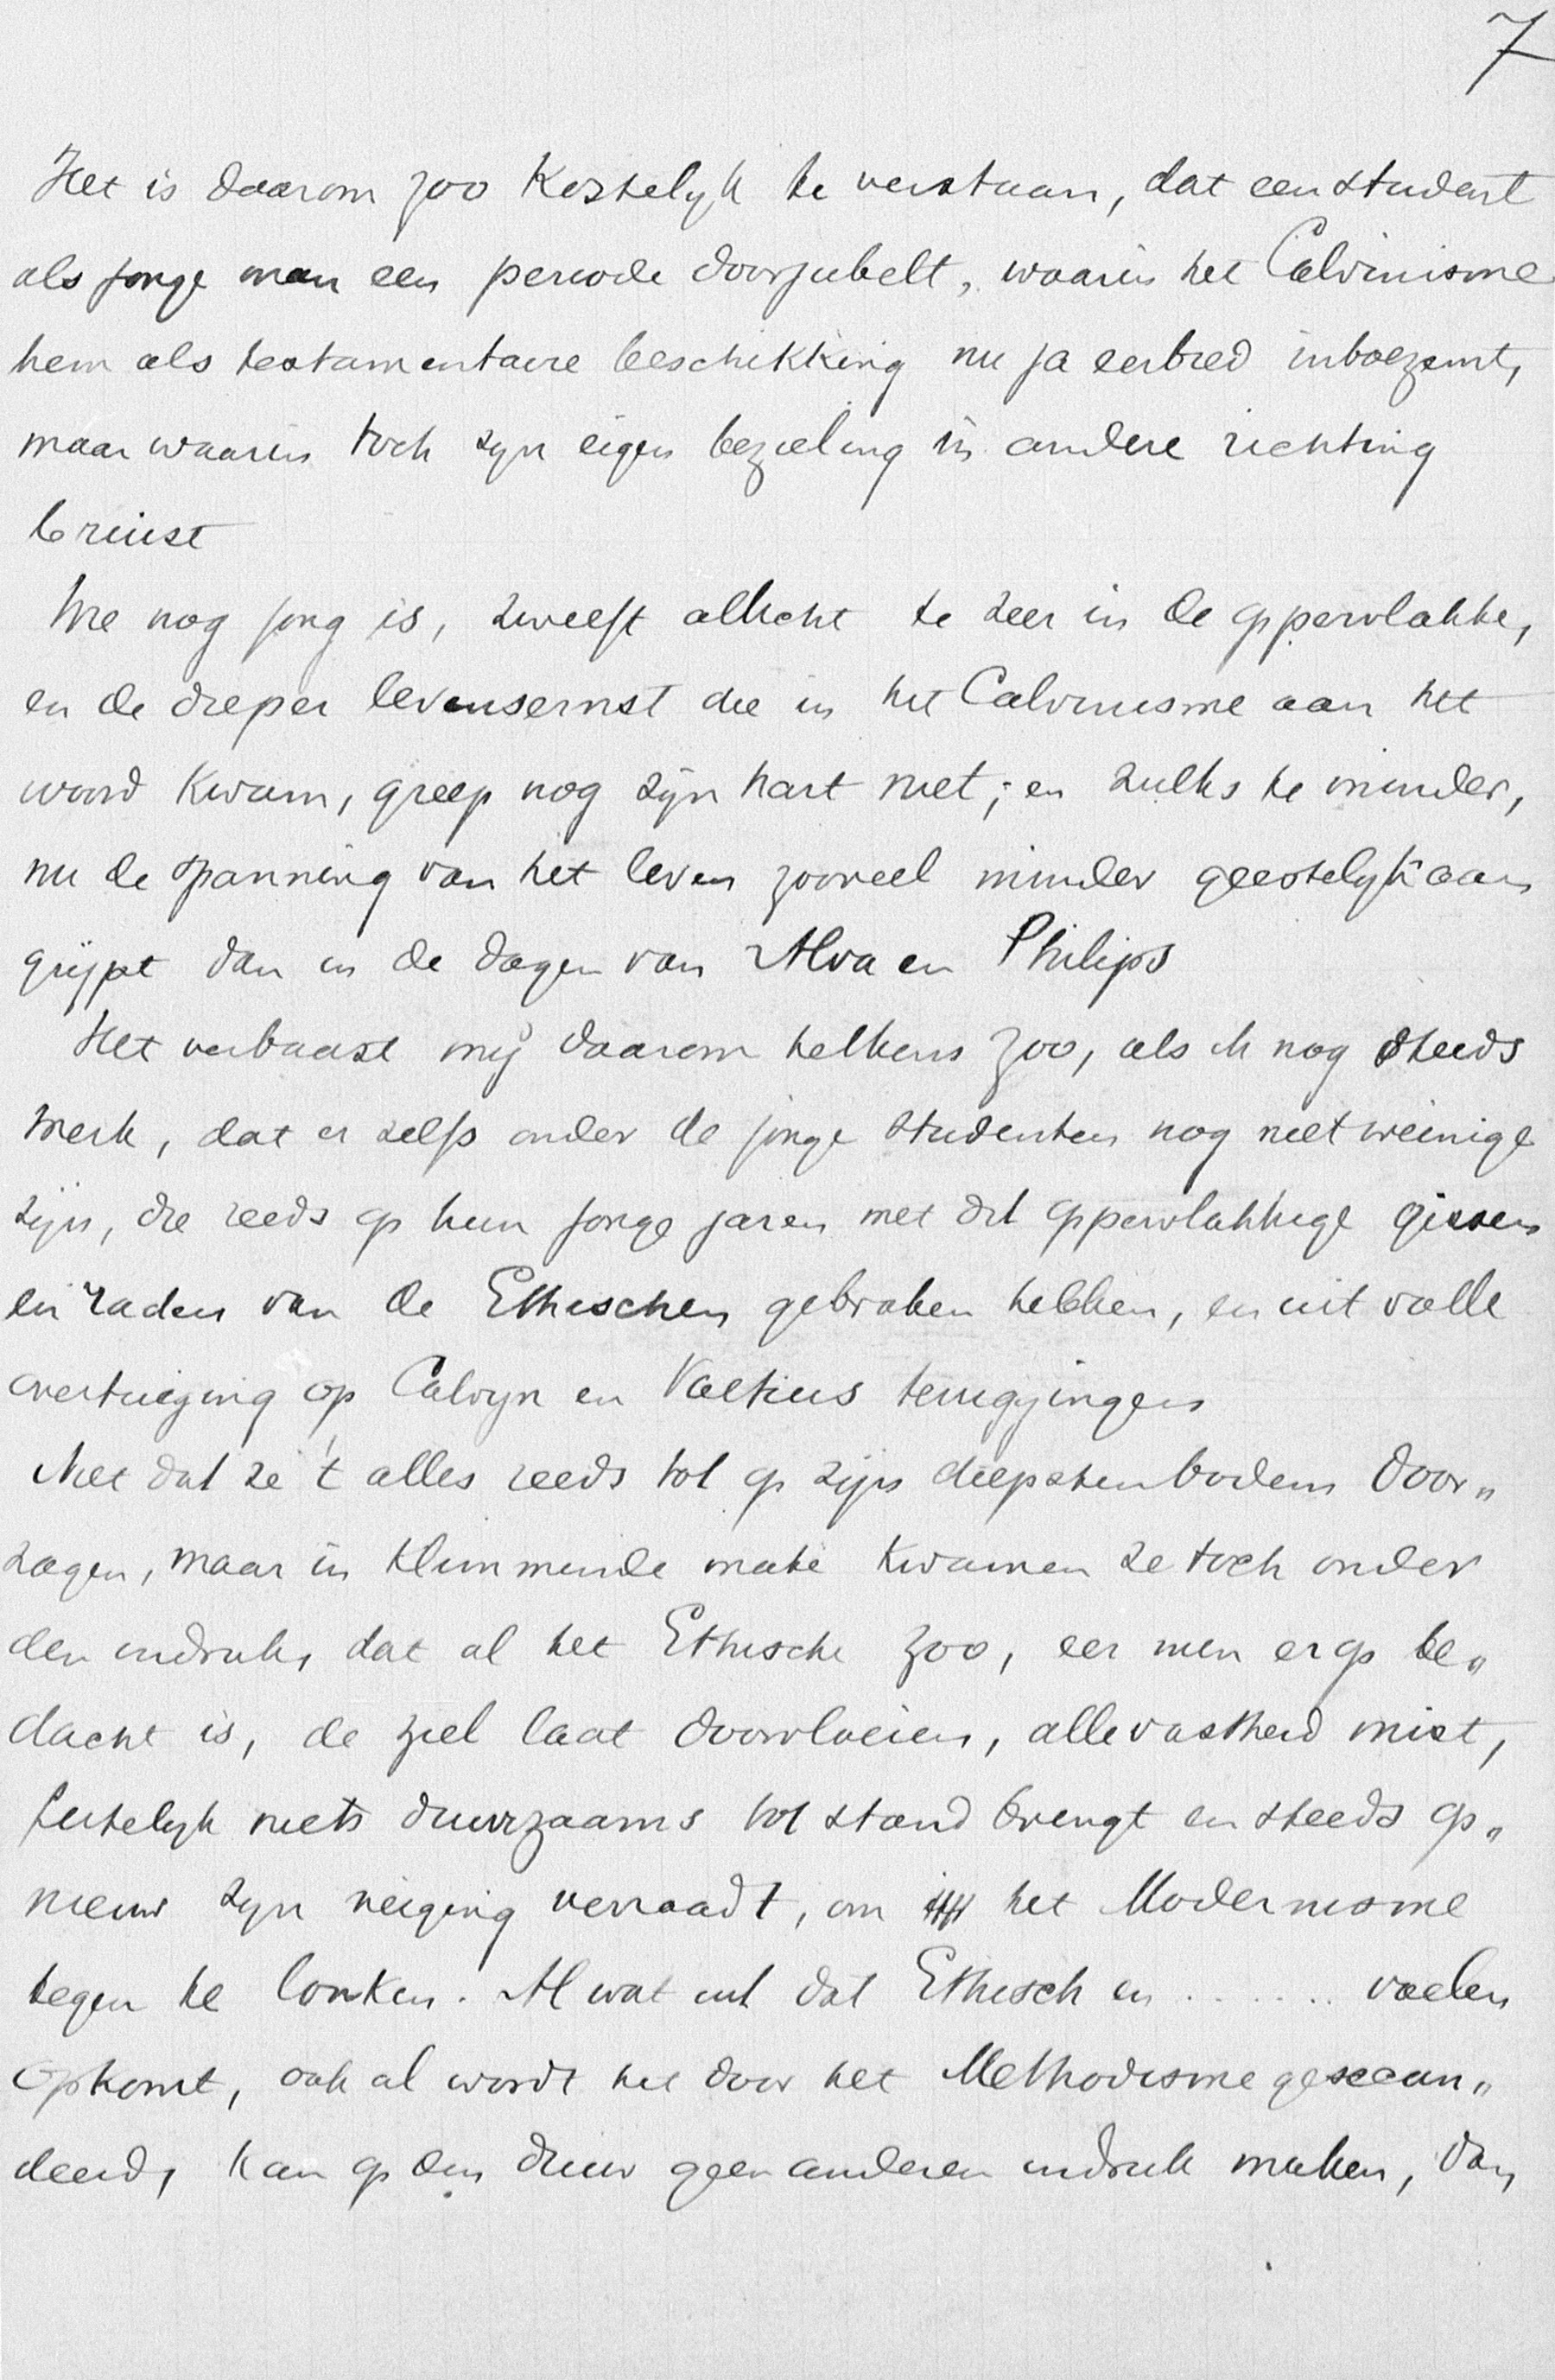 7
Het is daarom zoo kostelyk te verstaan, dat een student
als jonge man een periode doorjubelt, waarin het Calvinisme
hem als testamentaire beschikking nu ja eerbied inboezemt,
maar waarin toch zyn eigen bezieling in andere richting
bruist
Wie nog jong is, zweeft allicht te zeer in de oppervlakke,
en de dieper levensernst die in het Calvinisme aan het
woord kwam, greep nog zijn hart niet; en zulks te minder,
nu de spanning van het leven zooveel minder geestelyk aan
grijpt dan in de dagen van Alva en Philips
Het verbaast mij daarom telkens zoo, als ik nog steeds
merk, dat er zelfs onder de jonge studenten nog niet weinige
zijn, die reeds op hun jonge jaren met dit oppervlakkige gissen
en raden van de Ethischen gebroken hebben, en uit volle
overtuiging op Calvyn en Voetius teruggingen
Niet dat ze 't alles reeds tot op zijn diepsten bodem door„
zagen, maar in klimmende mate kwamen ze toch onder
den indruk, dat al het Ethische zoo, eer men er op be„
dacht is, de ziel laat doorvloeien, alle vastheid mist,
feitelyk niets duurzaams tot stand brengt en steeds op„
nieuw zyn neiging verraadt, om het Modernisme
tegen te lonken. Al wat uit dat Ethisch en ...... voelen
opkomt, ook al wordt het door het Methodisme gesecun„
deerd, kan op den duur geen anderen indruk maken, dan